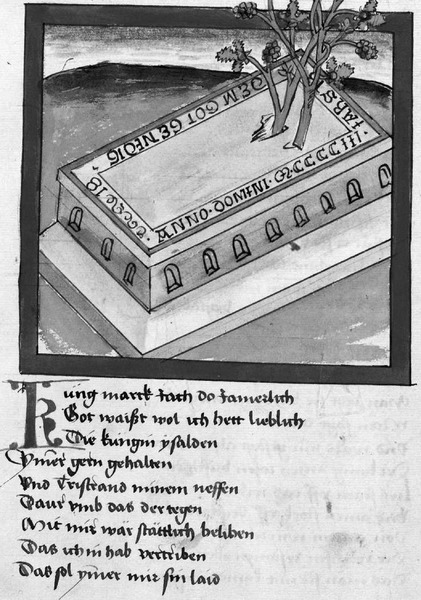 ANNO · DOMNI · M · CCCCC III · IARS
DEM GOT GENEDIG
Kung marck Jach do Jamerlich
Got waißt wol ich hett lieblich
Die kungin ysalden
ymer gern gehalten
Vnd Tristrand minem neffen
Taur vmb das der tegen
Mit mir wär stättlich beliben
Das ich in hab vertriben
Das sol ymer mir sin laid